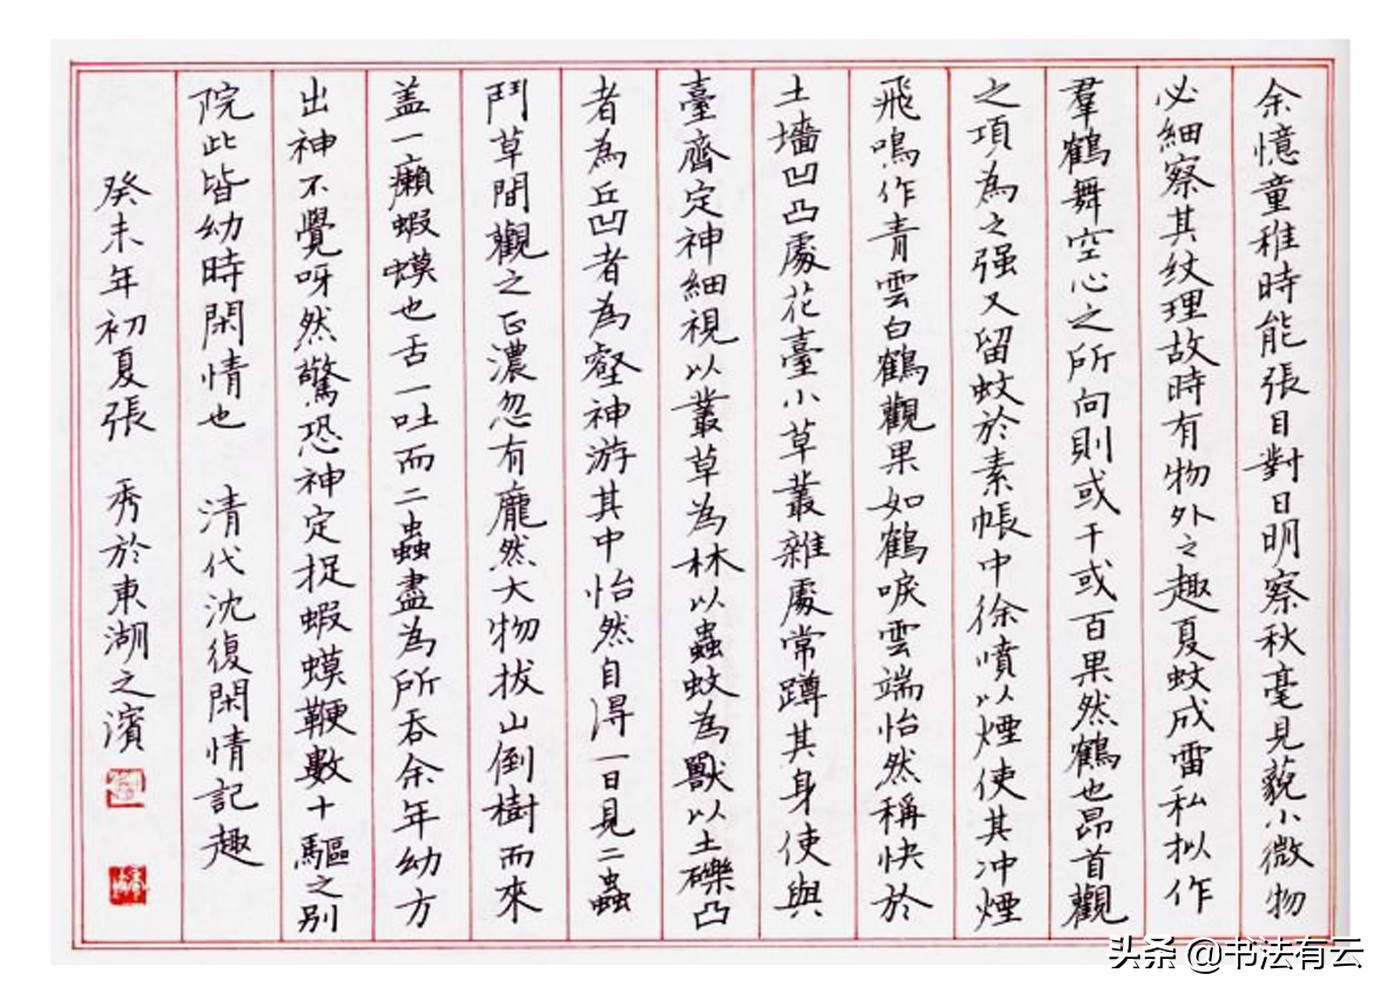 余憶童稚時能張目對日明察秋毫見藐小微物
必細察其紋理故時有物外之趣夏蚊成雷私拟作
羣鶴舞空心之所向則或千或百果然鶴也昂首觀
之項為之强又留蚊於素帳中徐噴以煙使其冲煙
飛鳴作青雲白鶴觀果如鶴唳雲端怡然稱快於
土墻凹凸處花臺小草叢雜處常蹲其身使與
臺齊定神細視以叢草為林以蟲蚊為獸以土礫凸
者為丘凹者為壑神游其中怡然自得一日見二蟲
鬥草間觀之正濃忽有龐然大物拔山倒樹而來
盖一癩蝦蟆也舌一吐而二蟲盡為所吞余年幼方
出神不覺呀然驚恐神定捉蝦蟆鞭數十驅之别
院此皆幼時閑情也 清代沈復閑情記趣
癸未年初夏張 秀於東湖之濱
头条 @书法有云